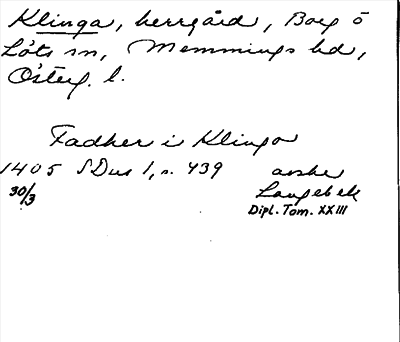 Klinga, herrgård, Borg o
Löts sn, Memmings hd,
Österg. l.
Fadher i Klingo
1405 SDns 1, s. 439 avskr
30/3 Langebek
Dipl. Tom. XXIII